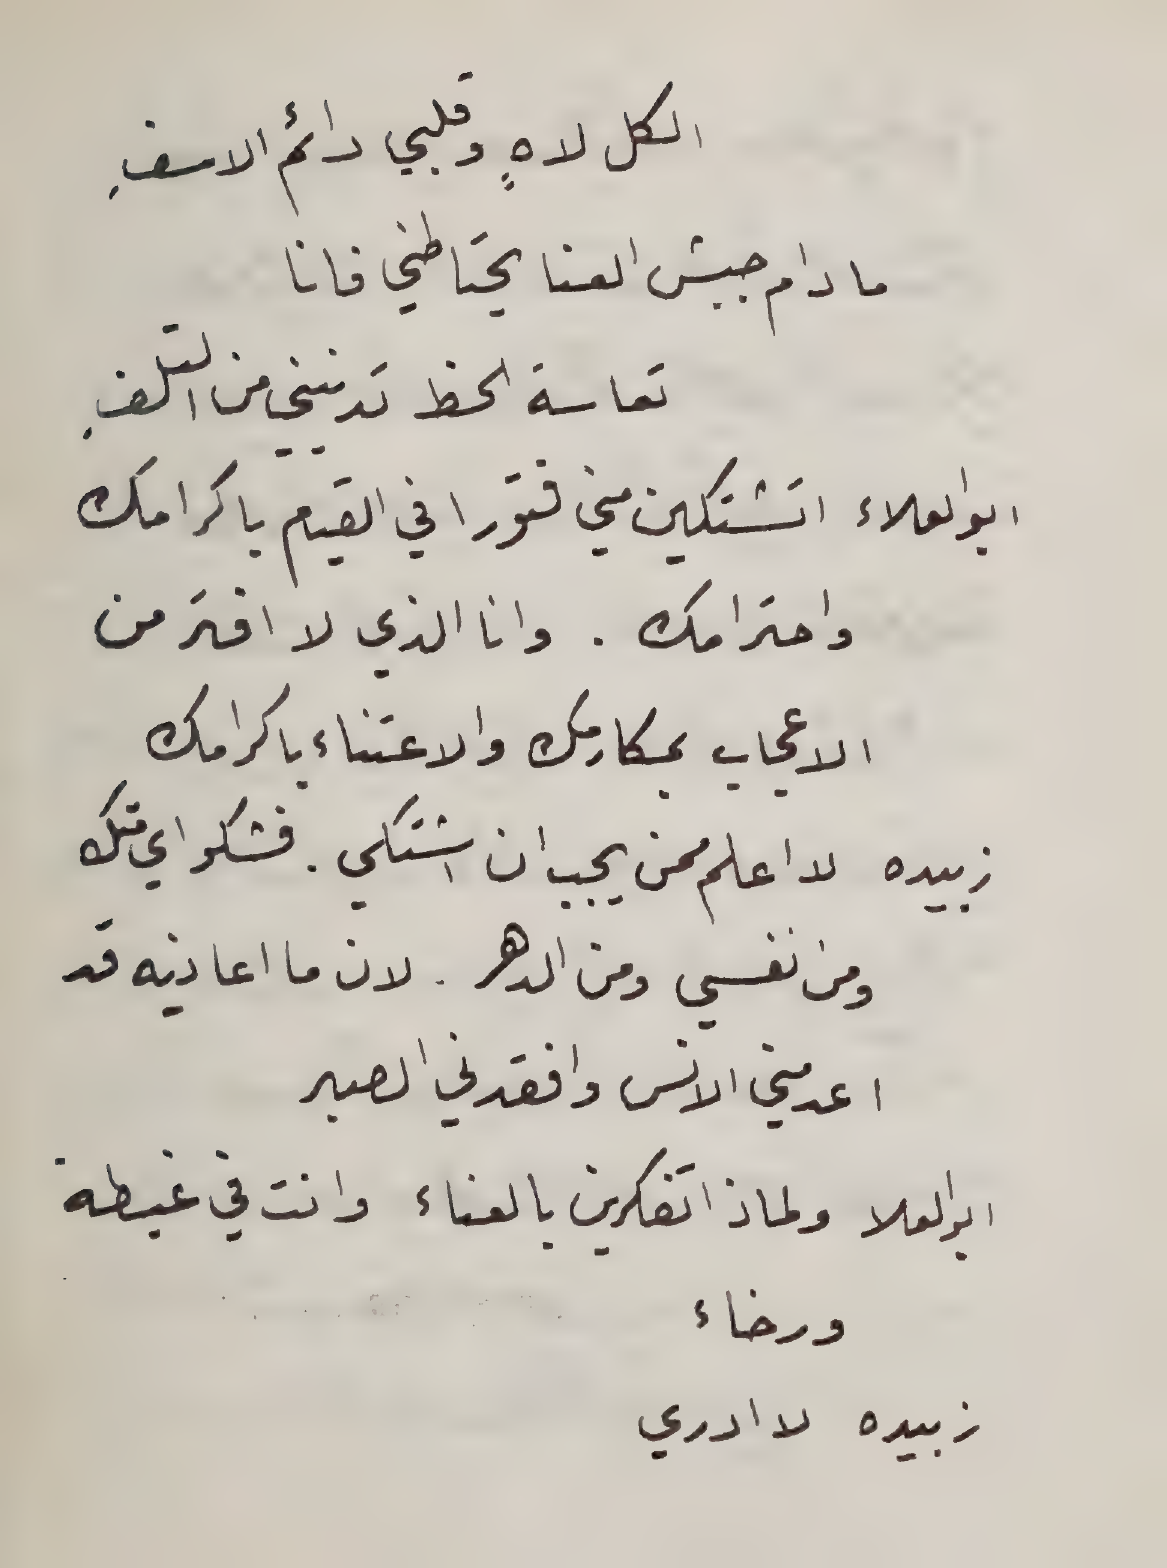 الكل لاهٍ وقلبي دائم الاسفِ
ما دام جيش العنا يحتاطني فانا
تعاسة الحظ تدنيني من التلفِ
ابو العلاء اتشتكين مني فتورا في القيام باكرامك
واحترامك . وانا الذي لا افتر من
الاعجاب بمكارمك والاعتناء باكرامك
زبيده لا اعلم ممن يجب ان اشتكي . فشكواي منك
ومن نفسي ومن الدهر . لان ما اعانيه قد
اعدمني الانس وافقدني الصبر
ابو العلا ولماذا تفكرين بالعناء وانت في غبطة
ورخاء
زبيده لا ادري